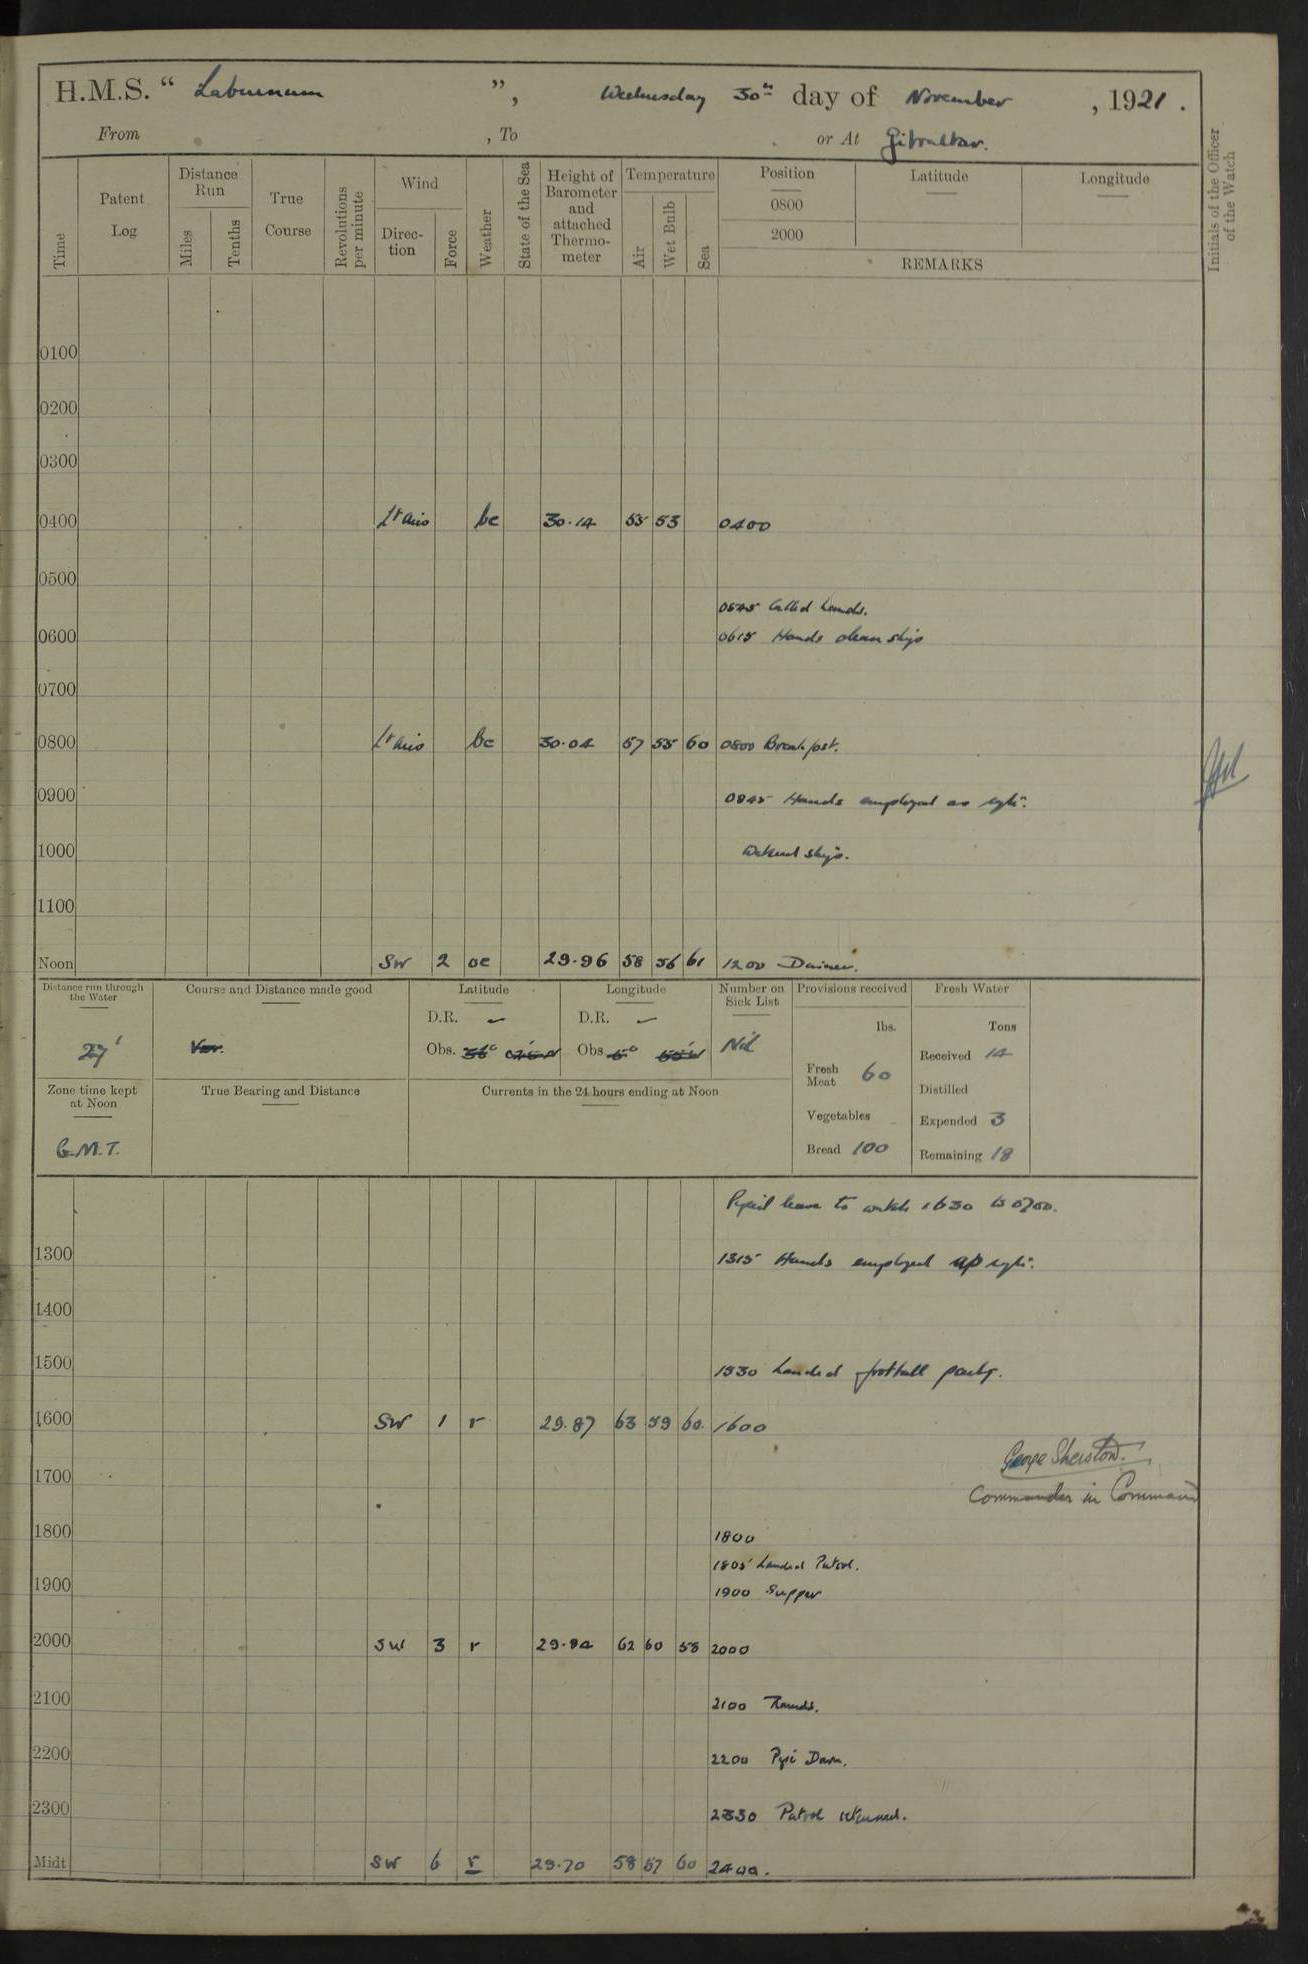 H.M.S. “ Laburnum ”, Wednesday 30th day of November , 1921 .
From , To or At Gibraltar.
Time
Patent Log
Distance Run
Miles
Tenths
True Course
Revolutions per minute
Wind
Direc-tion
Force
Weather
State of the Sea
Height of Barometer and attached Thermo-meter
Temperature
Air
Wet Bulb
Sea
Position
0800
2000
Latitude
Longitude
REMARKS
Initials of the Officer of the Watch
0100
0200
0300
0400 Lt airs bc 30.14 55 53 0400
0500
0545 Called hands.
0600 0615 Hands clean ship
0700
0800 Lt airs bc 30.04 57 55 60 0800 Breakfast.
0900 0845 Hands employed as
1000 ship.
1100
Noon SW 2 oc 29.96 58 56 61 1200 Dinner.
Distance run through the Water
Course and Distance made good
Latitude
D.R.
Obs.
Longitude
D.R.
Obs
Number on Sick List
Nil
Provisions received
lbs.
Fresh Meat 60
Vegetables
Bread 100
Fresh Water
Tons
Received 14
Distilled
Expended 3
Remaining 18
Zone time kept at Noon
G.M.T.
True Bearing and Distance
Currents in the 24 hours ending at Noon
leave to watch 1630 to 0700.
1300 1315 Hands employed
1400
1500 1530 Landed football party.
1600 SW 1 r 29.87 63 59 60 1600
George Sherston.
1700 Commander in Command
1800 1800
1805 Landed Patrol.
1900 1900 Supper
2000 SW 3 r 29.84 62 60 58 2000
2100 2100 Rounds.
2200 2200 Pipe Down.
2300 2330 Patrol returned.
Midt SW 6 r 29.70 58 57 60 2400.